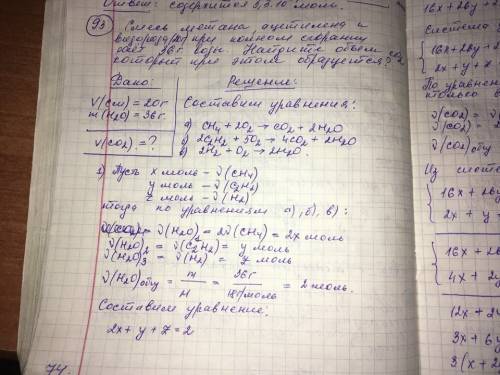 Ответ: содержится 3,5·10 моль.
93 Смесь метана ацетилена и
водорода при полном сгорании
дает 36г воды. Найдите объем CO2
который при этом образуется?
Дано:
V(см) = 20г
m(H2O) = 36г.
V(CO2) = ?
Решение:
Составим уравнения:
а) CH4 + 2O2 → CO2 + 2H2O
б) 2C2H2 + 5O2 → 4CO2 + 2H2O
в) 2H2 + O2 → 2H2O.
1) Пусть x моль – ν(CH4)
y моль – ν(C2H2)
z моль – ν(H2)
тогда по уравнениям а), б), в):
ν(H2O)2 = 2ν(CH4) = 2x моль
ν(H2O)2 = ν(C2H2) = y моль
ν(H2O)3 = ν(H2) = z моль
ν(H2O)общ = m/M = 36г/18г/моль = 2 моль.
Составим уравнение:
2x + y + z = 2
74.
16x + 26y +
Система
16x + 26y +
2x + y + z
По уравнен
ν(CO2) =
ν(CO2)
ν(CO2)общ
Из систе
16x + 26y
2x + y +
16x + 26
4x + 2y
12x + 24
3x + 6y
3(x + 2